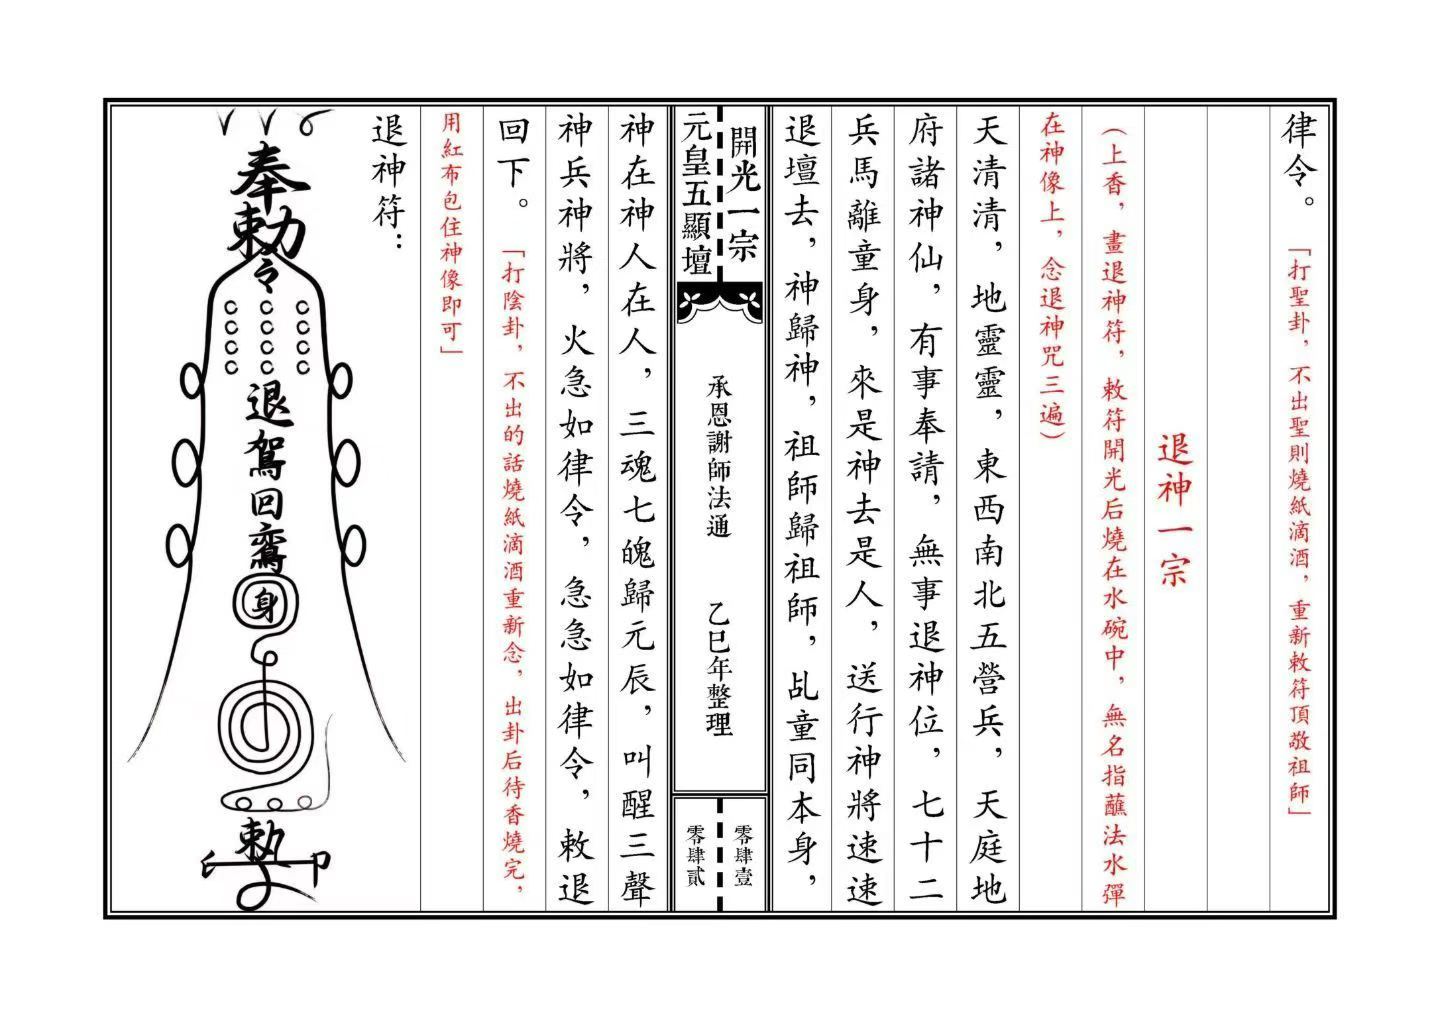 律令。「打聖卦，不出聖則燒紙滴酒，重新敕符頂敬祖師」
退神一宗
（上香，畫退神符，敕符開光后燒在水碗中，無名指蘸法水彈
在神像上，念退神咒三遍）
天清清，地靈靈，東西南北五營兵，天庭地
府諸神仙，有事奉請，無事退神位，七十二
兵馬離童身，來是神去是人，送行神將速速
退壇去，神歸神，祖師歸祖師，乩童同本身，
開光一宗
零肆壹
元皇五顯壇
零肆貳
承恩謝師法通 乙巳年整理
神在神人在人，三魂七魄歸元辰，叫醒三聲
神兵神將，火急如律令，急急如律令，敕退
回下。「打陰卦，不出的話燒紙滴酒重新念，出卦后待香燒完，
用紅布包住神像即可」
退神符：
奉
勅
令
退駕回鸞
身
勅